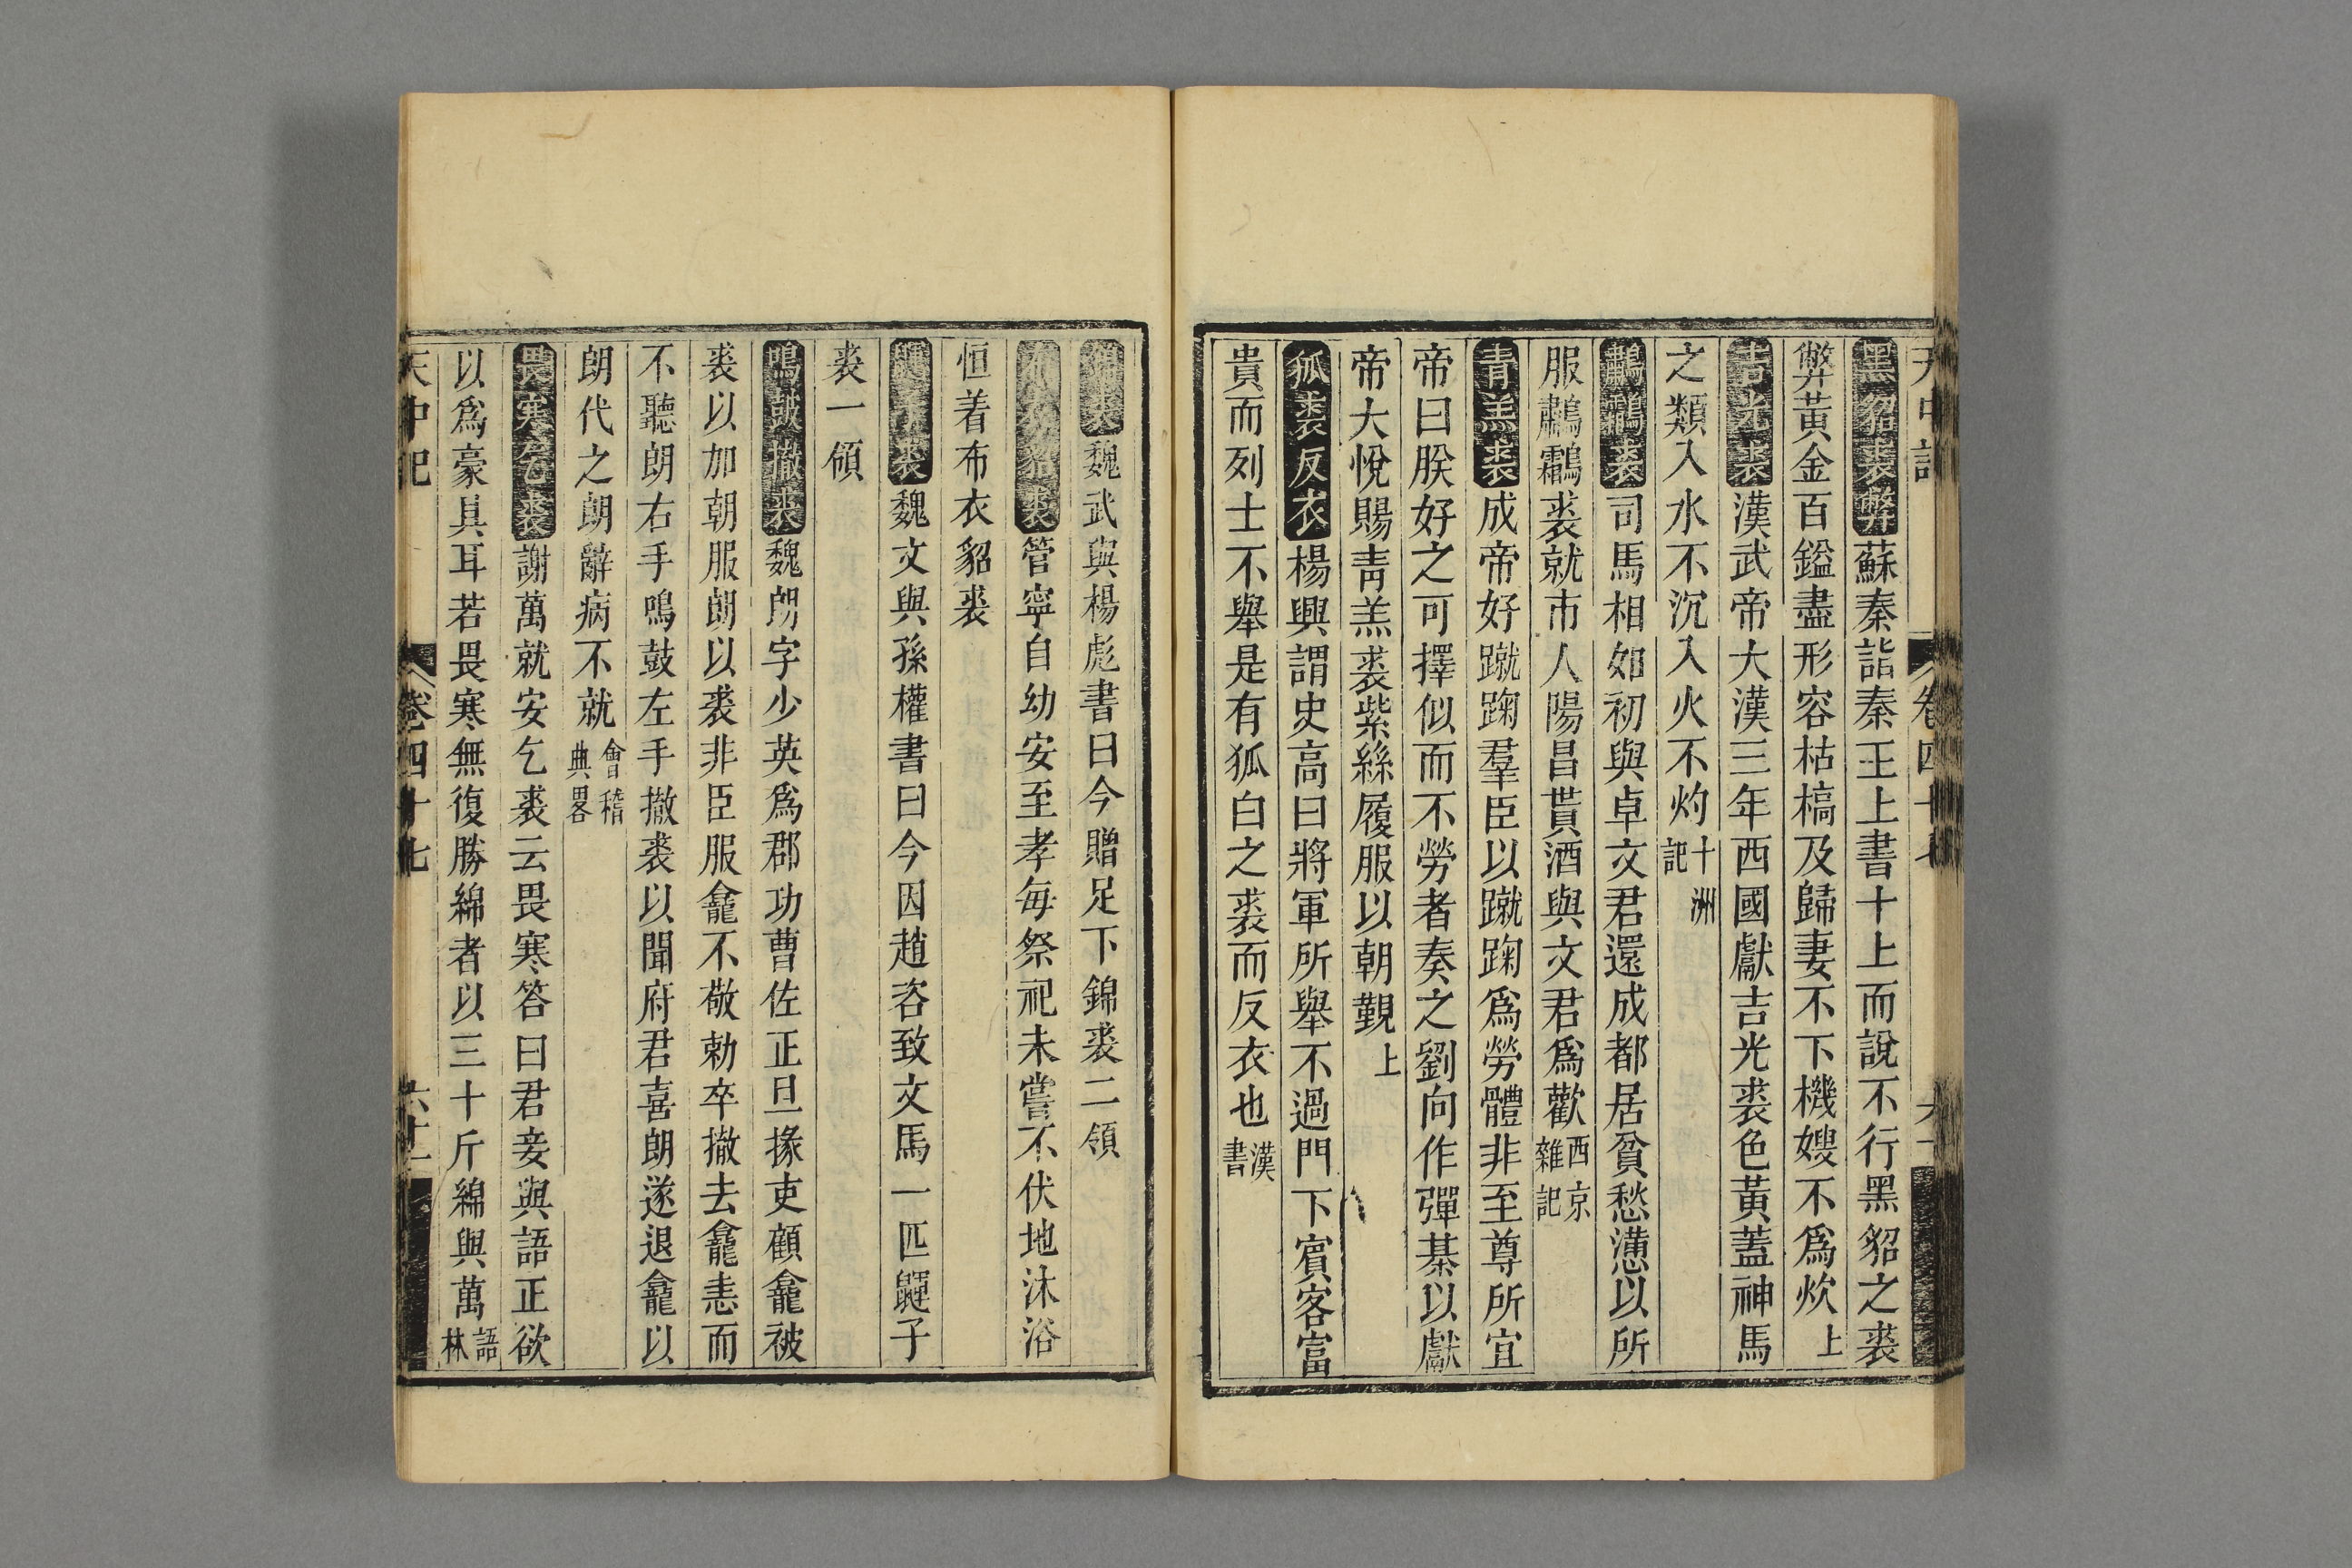 黑貂裘弊蘇秦詣秦王上書十上而說不行黑貂之裘
弊黃金百鎰盡形容枯槁及歸妻不下機嫂不爲炊上
吉光裘漢武帝大漢三年西國獻吉光裘色黃蓋神馬
之類入水不沉入火不灼十洲記
鷫鸘裘司馬相如初與卓文君還成都居貧愁懣以所
服鷫鸘裘就市人陽昌貰酒與文君爲歡西京雜記
青羔裘成帝好蹴踘羣臣以蹴踘爲勞體非至尊所宜
帝曰朕好之可擇似而不勞者奏之劉向作彈棊以獻
帝大悅賜靑羔裘紫絲履服以朝覲上
狐裘反衣楊興謂史高曰將軍所舉不過門下賓客富
貴而列士不舉是有狐白之裘而反衣也漢書
錦裘魏武與楊彪書曰今贈足下錦裘二領
貂裘管寧自幼安至孝每祭祀未嘗不伏地沐浴
恒着布衣貂裘
子裘魏文與孫權書曰今因趙咨致文馬一匹䶈子
裘一領
鳴鼓撤裘魏朗字少英爲郡功曹佐正旦掾吏顧龕被
裘以加朝服朗以裘非臣服龕不敬勅卒撤去龕恚而
不聽朗右手鳴鼓左手撤裘以聞府君喜朗遂退龕以
朗代之朗辭病不就會稽典畧
畏寒乞裘謝萬就安乞裘云畏寒答曰君妄與語正欲
以爲豪具耳若畏寒無復勝綿者以三十斤綿與萬語林
天中記 卷四十七